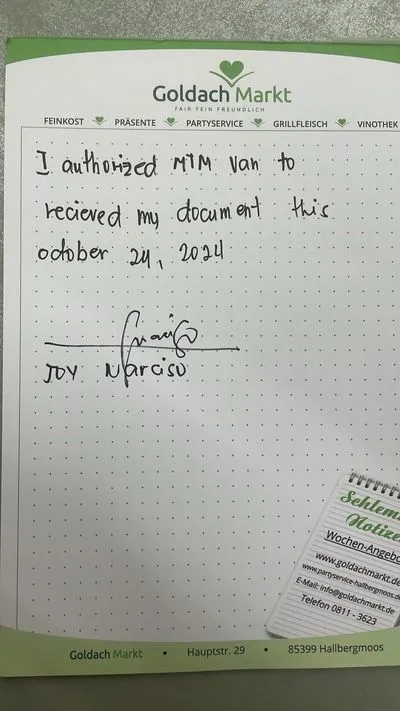 Goldach Markt
FAIR FEIN FREUNDLICH
FEINKOST PRÄSENTE PARTYSERVICE GRILLFLEISCH VINOTHEK
I authorized MTM Van to
recieved my document this
october 24, 2024
Narciso
JOY Narciso
Schlem
Notize
Wochen-Angebo
www.goldachmarkt.de
www.partyservice-hallbergmoos.de
E-Mail: info@goldachmarkt.de
Telefon 0811 - 3623
Goldach Markt • Hauptstr. 29 • 85399 Hallbergmoos